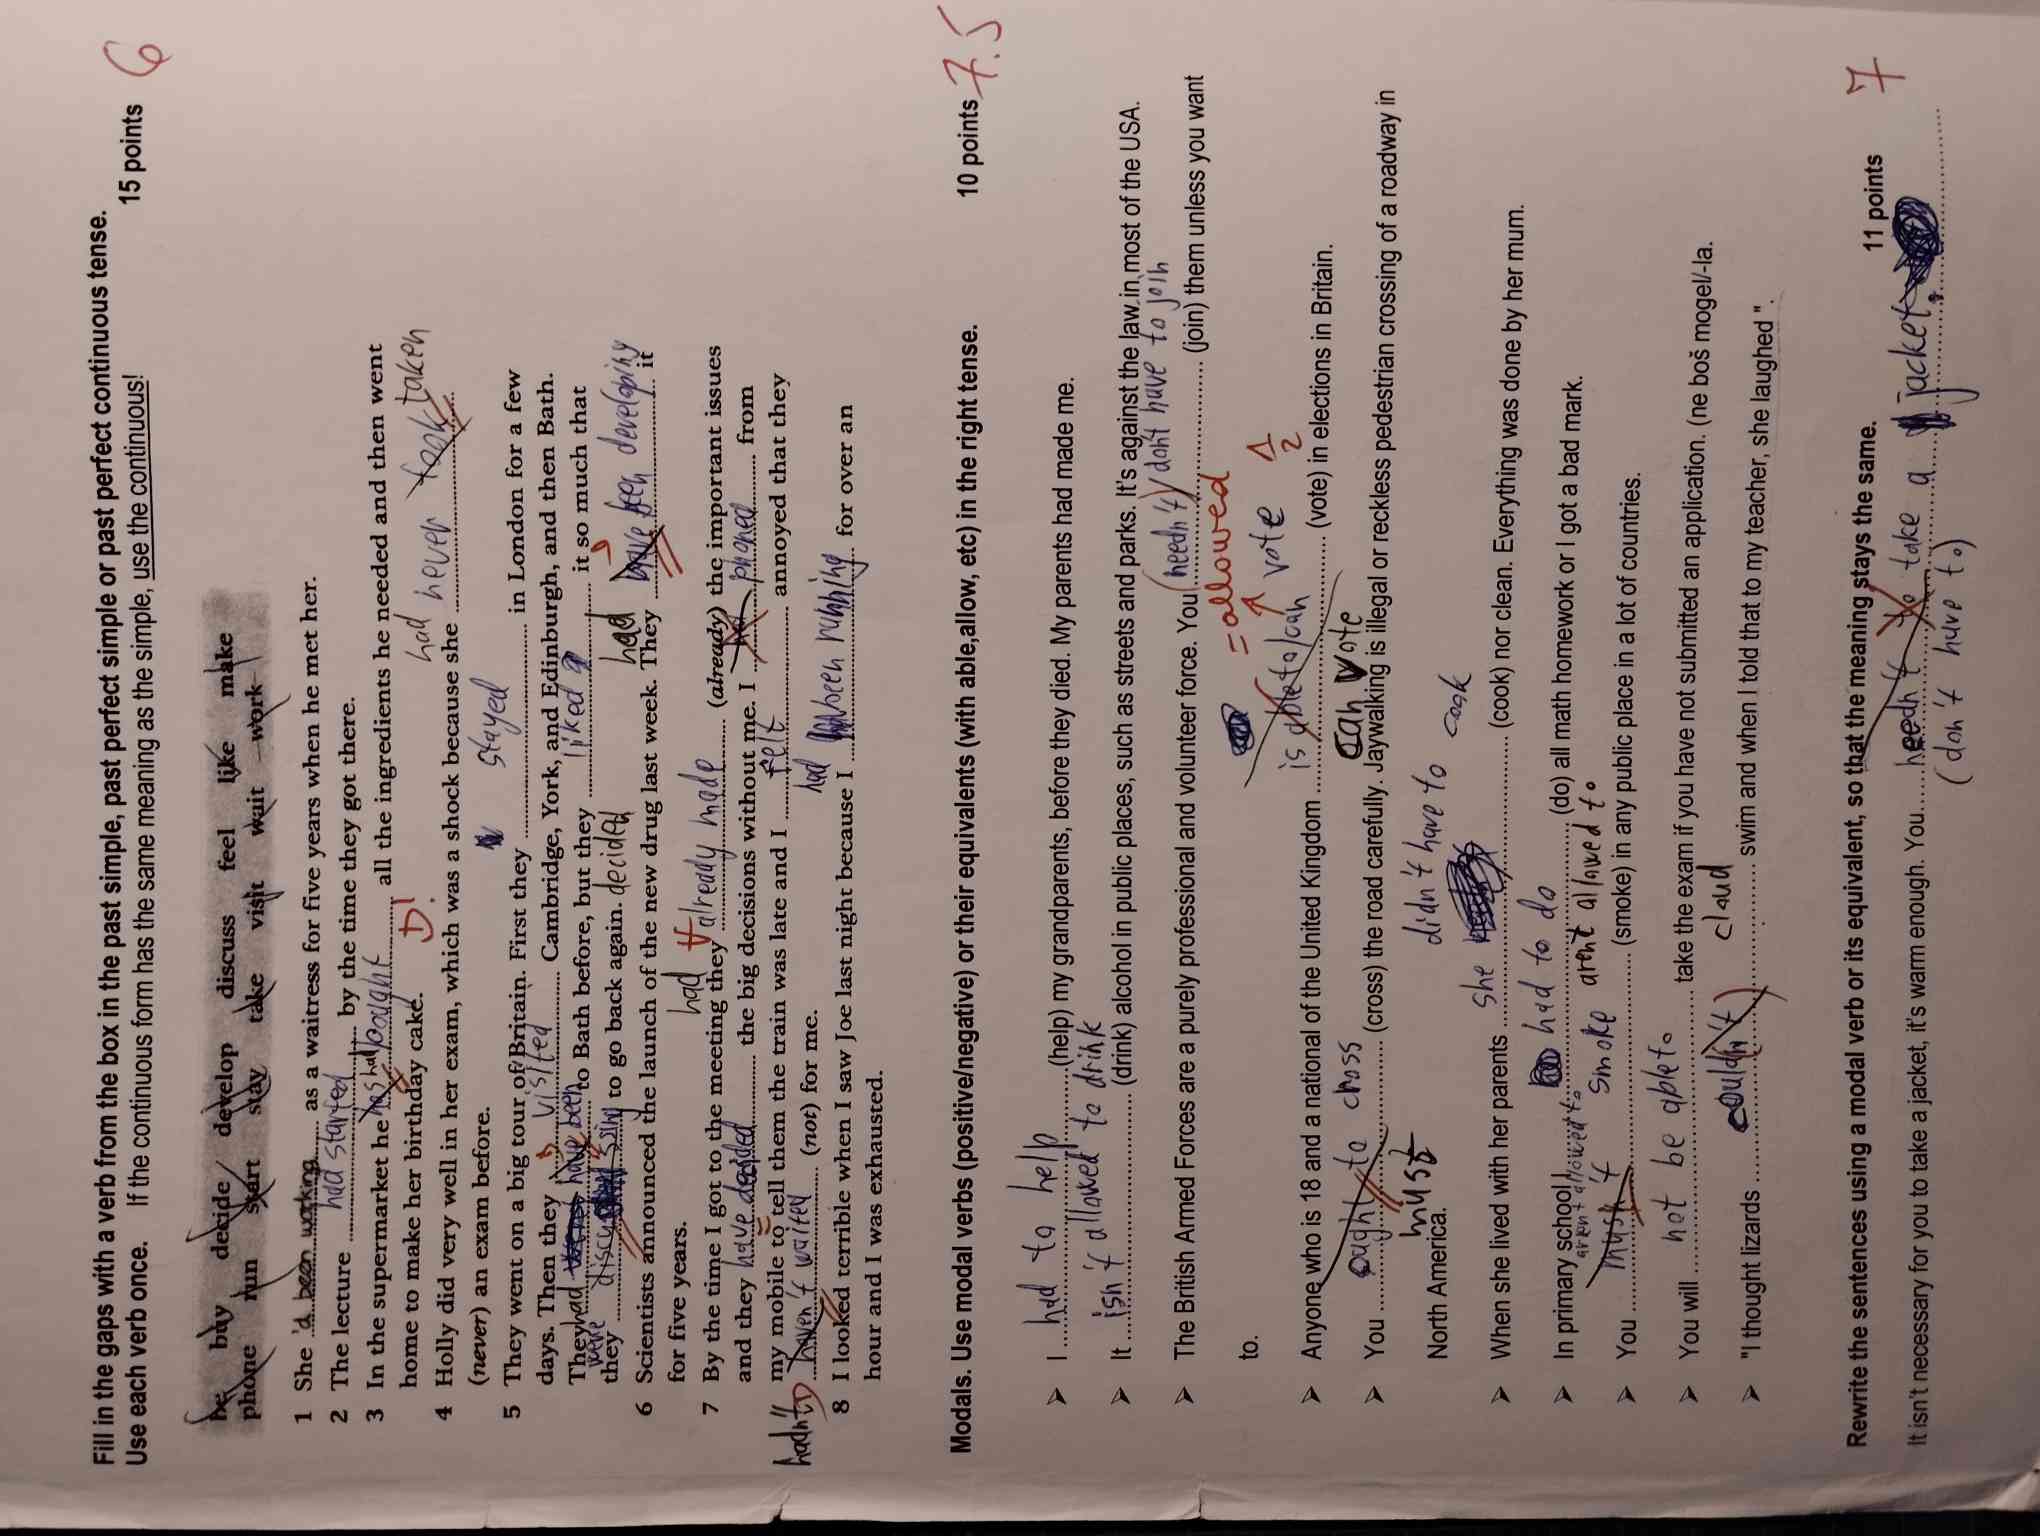 Fill in the gaps with a verb from the box in the past simple, past perfect simple or past perfect continuous tense.
Use each verb once. If the continuous form has the same meaning as the simple, use the continuous!
15 points 6
be buy decide develop discuss feel like make
phone run start stay take visit wait work
1 She 'd been working as a waitress for five years when he met her.
had started
2 The lecture ............ by the time they got there.
3 In the supermarket he has had bought all the ingredients he needed and then went
home to make her birthday cake. D!
had never took taken
4 Holly did very well in her exam, which was a shock because she ............
(never) an exam before.
stayed
5 They went on a big tour of Britain. First they ............ in London for a few
days. Then they visited Cambridge, York, and Edinburgh, and then Bath.
They had have been to Bath before, but they liked it so much that
were
they discussing to go back again. decided
had have been developing
6 Scientists announced the launch of the new drug last week. They ............ it
for five years.
had already made
7 By the time I got to the meeting they ............ (already) the important issues
and they have decided the big decisions without me. I phoned from
my mobile to tell them the train was late and I felt annoyed that they
hadn't haven't waited (not) for me.
had been running
8 I looked terrible when I saw Joe last night because I ............ for over an
hour and I was exhausted.
Modals. Use modal verbs (positive/negative) or their equivalents (with able,allow, etc) in the right tense. 10 points 7.5
➢ I had to help (help) my grandparents, before they died. My parents had made me.
isn't allowed to drink
➢ It ............ (drink) alcohol in public places, such as streets and parks. It's against the law in most of the USA.
(needn't)/don't have to join
➢ The British Armed Forces are a purely professional and volunteer force. You ............ (join) them unless you want
to.
=allowed
is able to/can vote 1/2
➢ Anyone who is 18 and a national of the United Kingdom ............ (vote) in elections in Britain.
can vote
ought to cross
➢ You ............ (cross) the road carefully. Jaywalking is illegal or reckless pedestrian crossing of a roadway in
must
North America.
didn't have to cook
➢ When she lived with her parents she ............ (cook) nor clean. Everything was done by her mum.
had to do
➢ In primary school I ............ (do) all math homework or I got a bad mark.
arent allowed to
musn't smoke aren't allowed to
➢ You ............ (smoke) in any public place in a lot of countries.
➢ You will not be able to take the exam if you have not submitted an application. (ne boš mogel/-la.
couldn't) cloud
➢ "I thought lizards ............ swim and when I told that to my teacher, she laughed ".
Rewrite the sentences using a modal verb or its equivalent, so that the meaning stays the same. 11 points 7
It isn't necessary for you to take a jacket, it's warm enough. You......needn't to take a jacket.
(don't have to)